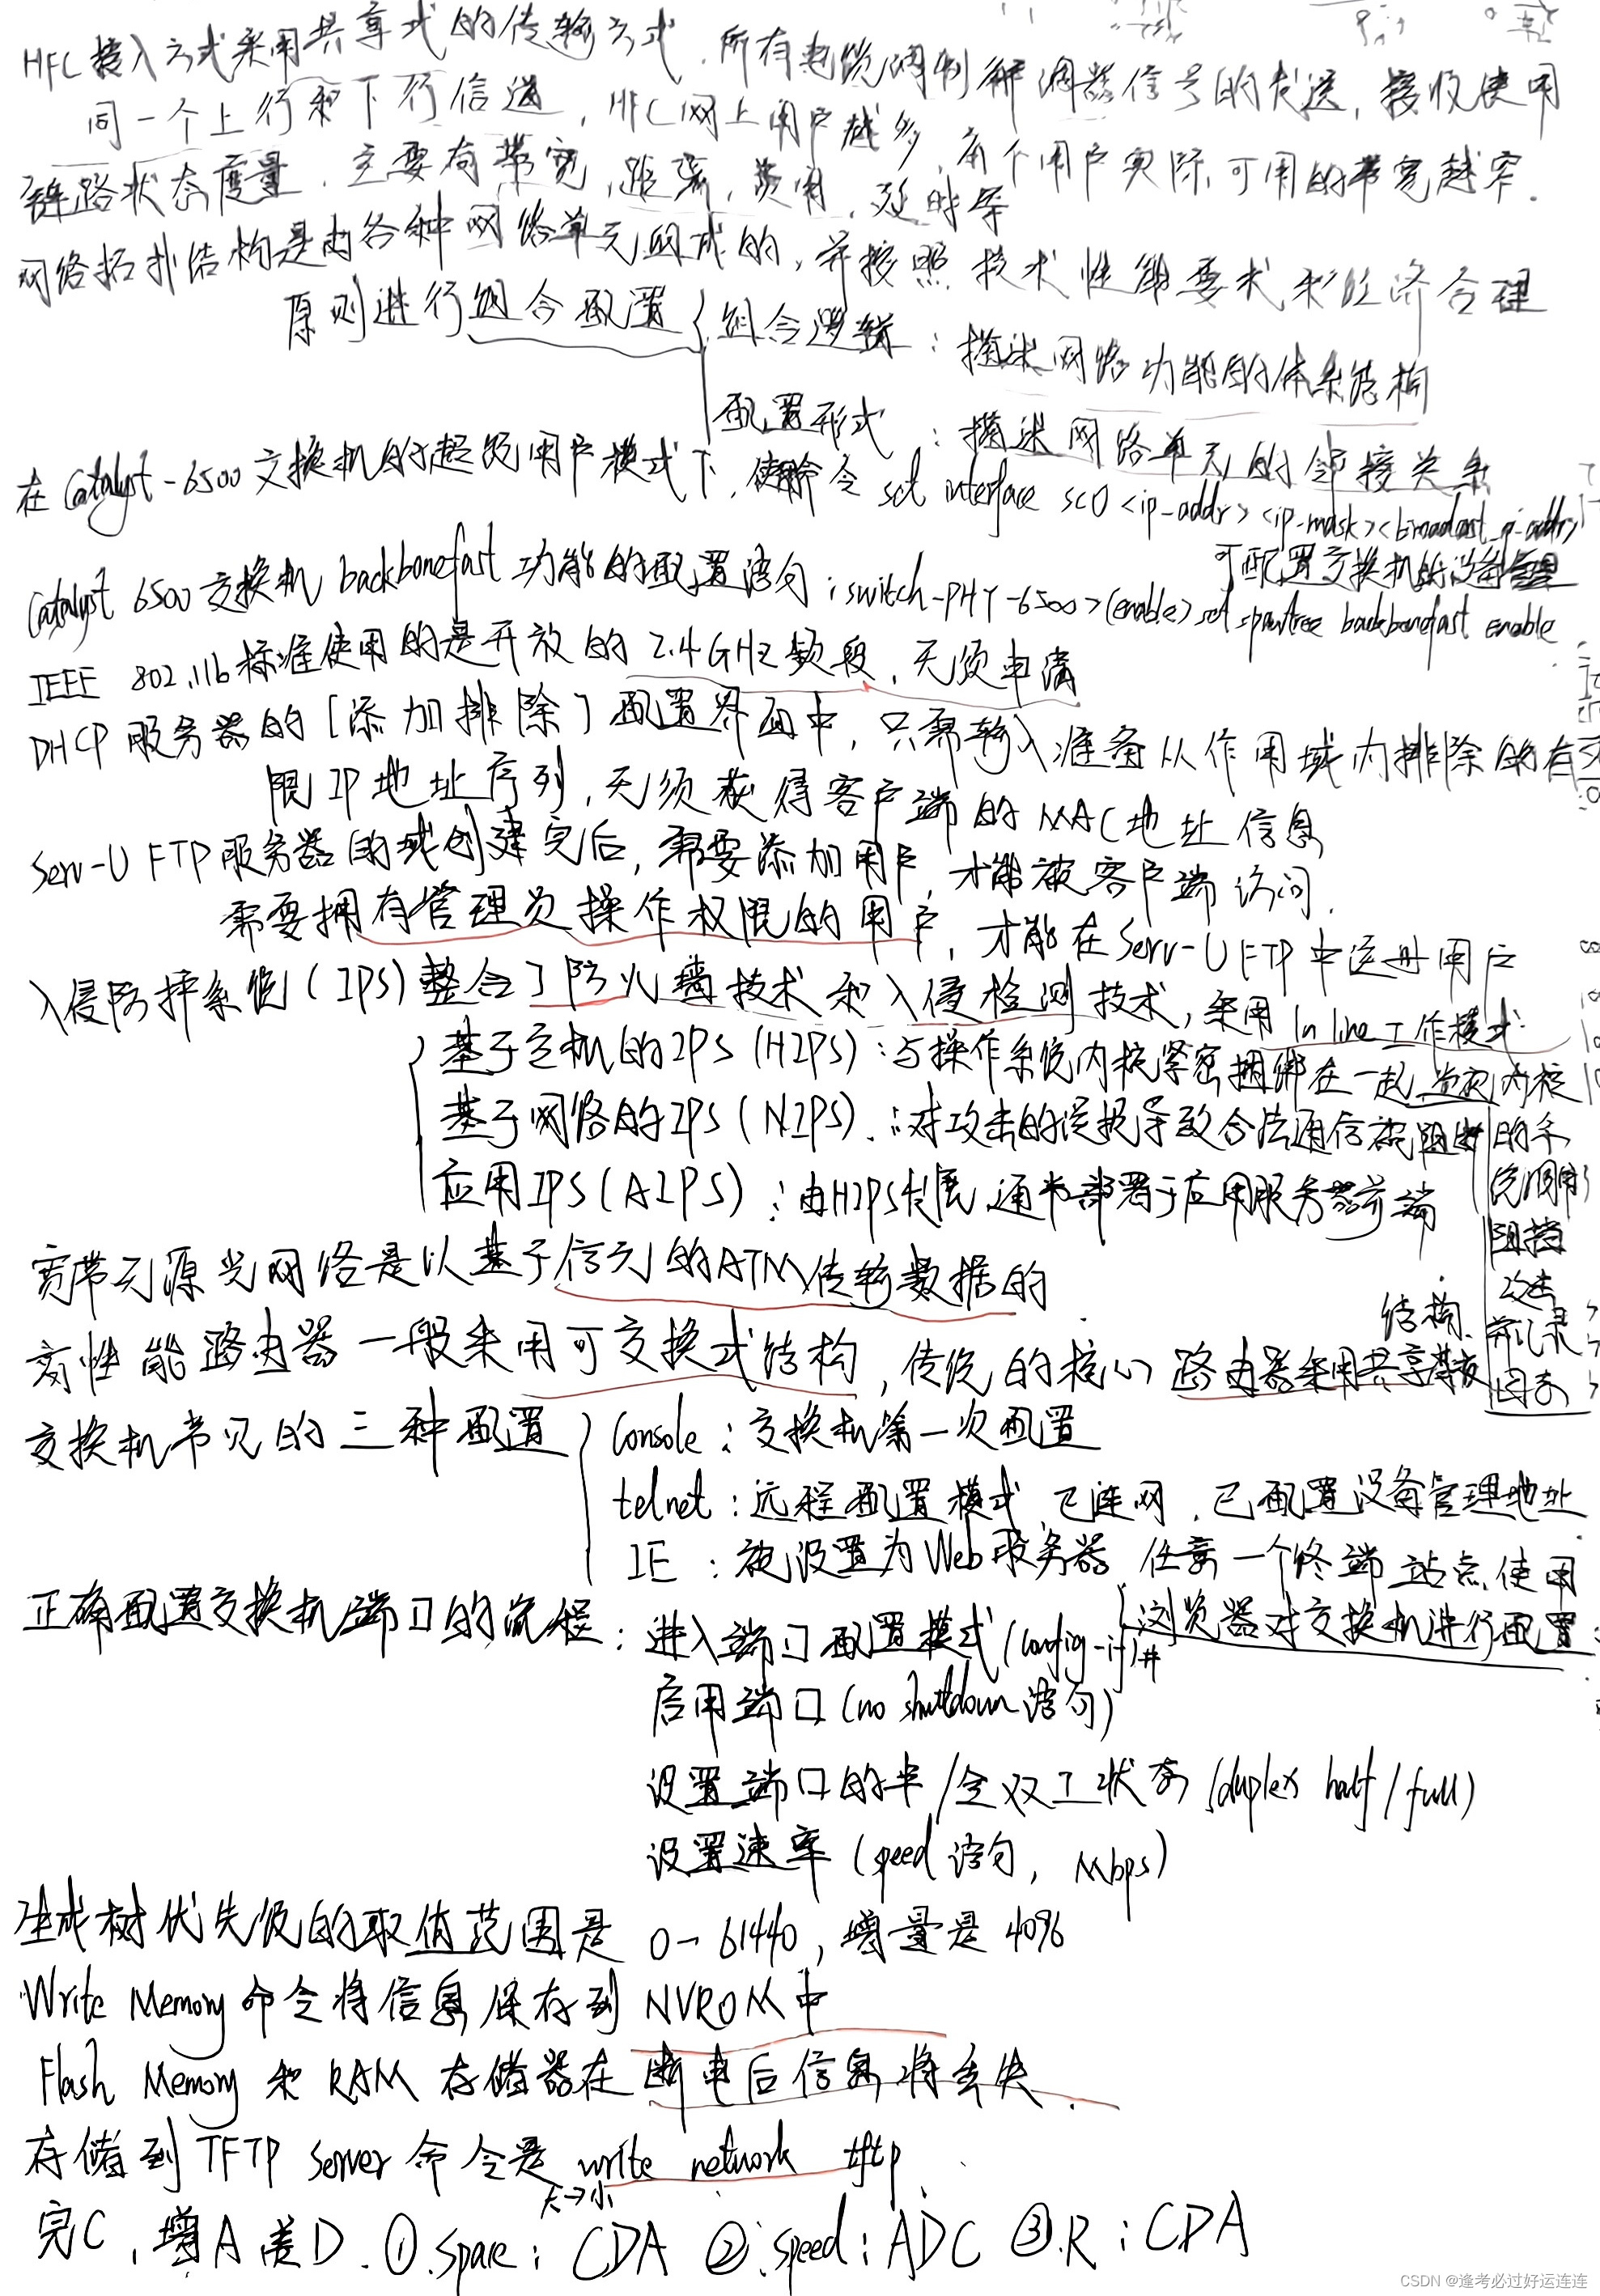 HFC接入方式采用共享式的传输方式，所有电缆调制解调器信号的发送，接收使用
同一个上行和下行信道，HFC网上用户越多，每个用户实际可用的带宽越窄．
链路状态度量．主要有带宽，距离，费用，延时等
网络拓扑结构是由各种网络单元组成的，并按照技术性能要求和经济合理
原则进行组合配置
组合逻辑：描述网络功能的体系结构
配置形式：描述网络单元的邻接关系
在Catalyst-6500交换机的超级用户模式下，使用命令 set interface sc0 <ip-addr> <ip-mask> <broadcast ip-addr>
可配置交换机的设备管理
Catalyst 6500交换机 backbonefast 功能的配置语句：switch-PHY-6500>(enable) set spantree backbonefast enable
IEEE 802.11b标准使用的是开放的2.4GHz频段，无须申请
DHCP服务器的[添加排除]配置界面中，只需输入准备从作用域内排除的有
限IP地址序列，无须获得客户端的MAC地址信息
Serv-U FTP服务器的域创建完后，需要添加用户，才能被客户端访问．
需要拥有管理员操作权限的用户，才能在Serv-U FTP中注册用户
入侵防护系统(IPS)整合了防火墙技术和入侵检测技术，采用In line工作模式
基于主机的IPS(HIPS)：与操作系统内核紧密捆绑在一起，监视内核
的系
统调用
阻挡
攻击
并记录
日志
基于网络的IPS(NIPS)：对攻击的误报导致合法通信被阻断
应用IPS(AIPS)：由HIPS发展，通常部署于应用服务器前端
宽带无源光网络是以基于信元的ATM传输数据的
高性能路由器一般采用可交换式结构，传统的核心路由器采用共享背板
结构．
交换机常见的三种配置
Console：交换机第一次配置
telnet：远程配置模式，已连网，已配置设备管理地址
IE：被设置为Web服务器，任意一个终端站点，使用
浏览器对交换机进行配置
正确配置交换机端口的流程：进入端口配置模式(config-if)#
启用端口(no shutdown语句)
设置端口的半/全双工状态(duplex half/full)
设置速率(speed语句，Mbps)
生成树优先级的取值范围是0-61440，增量是4096
Write Memory命令将信息保存到NVROM中
Flash Memory和RAM存储器在断电后信息将丢失．
存储到TFTP Server命令是 write network tftp．
大→小
完C，增A差D．①.space：CDA ②.speed：ADC ③.R：CDA
CSDN @逢考必过好运连连